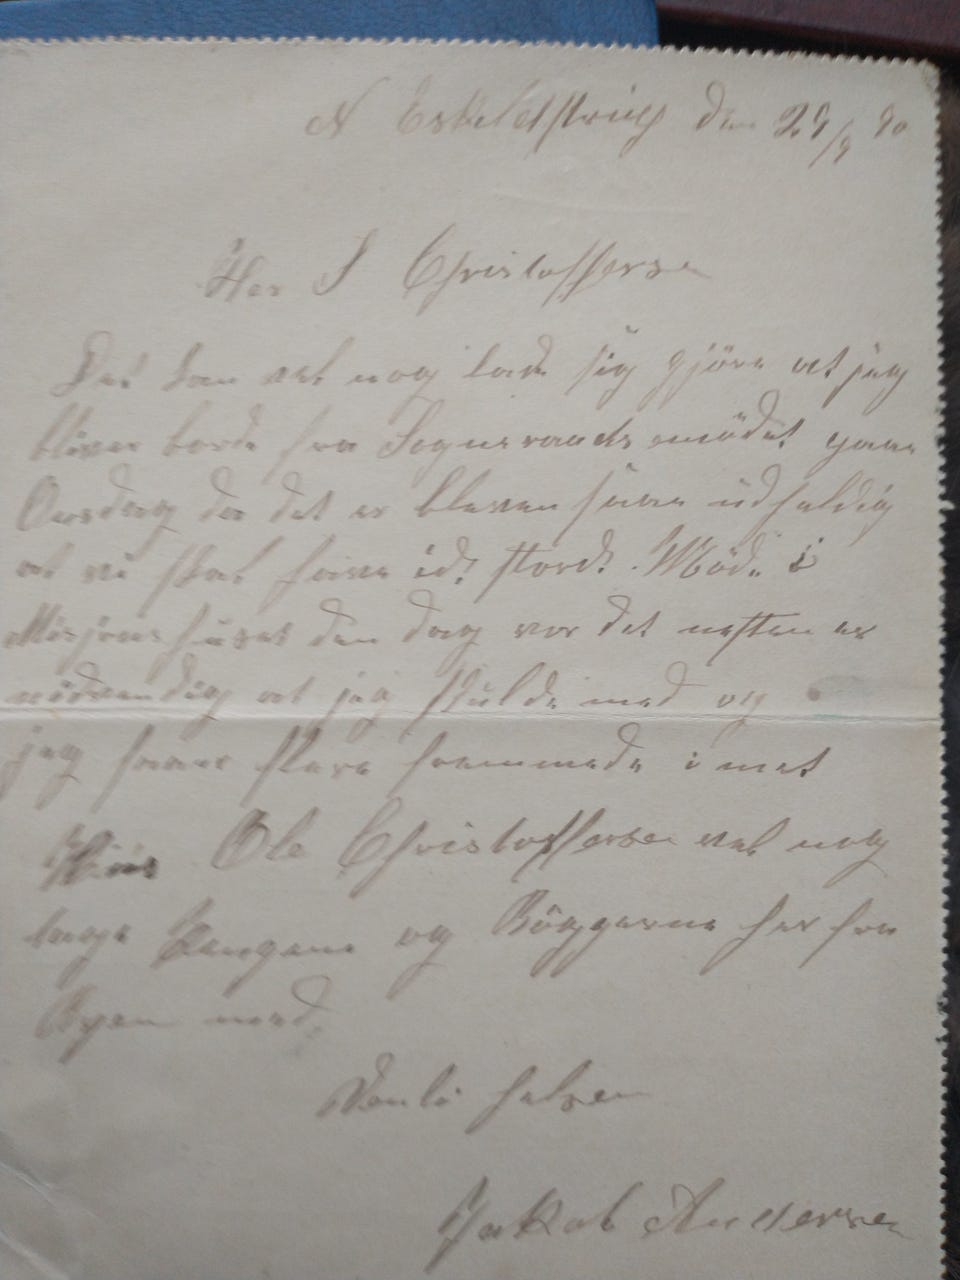 N Eskildstrup den 29/9 90
Her S Christoffersen
Det kan vel nog lade sig gjöre at jeg
bliver borte fra Sogneraadsmödet
Onsdag da det er bleven saa uheldig
at vi skal have idt stort Möde i
Misjonshuset den dag vor det nesten er
nödvendig at jeg skulde med og
jeg faaer flere fremmede i met
Ole Christoffersen vel nog
tage Pengene og Böggerne her fra
Byen med
Venli helsen
Jakob Andersen